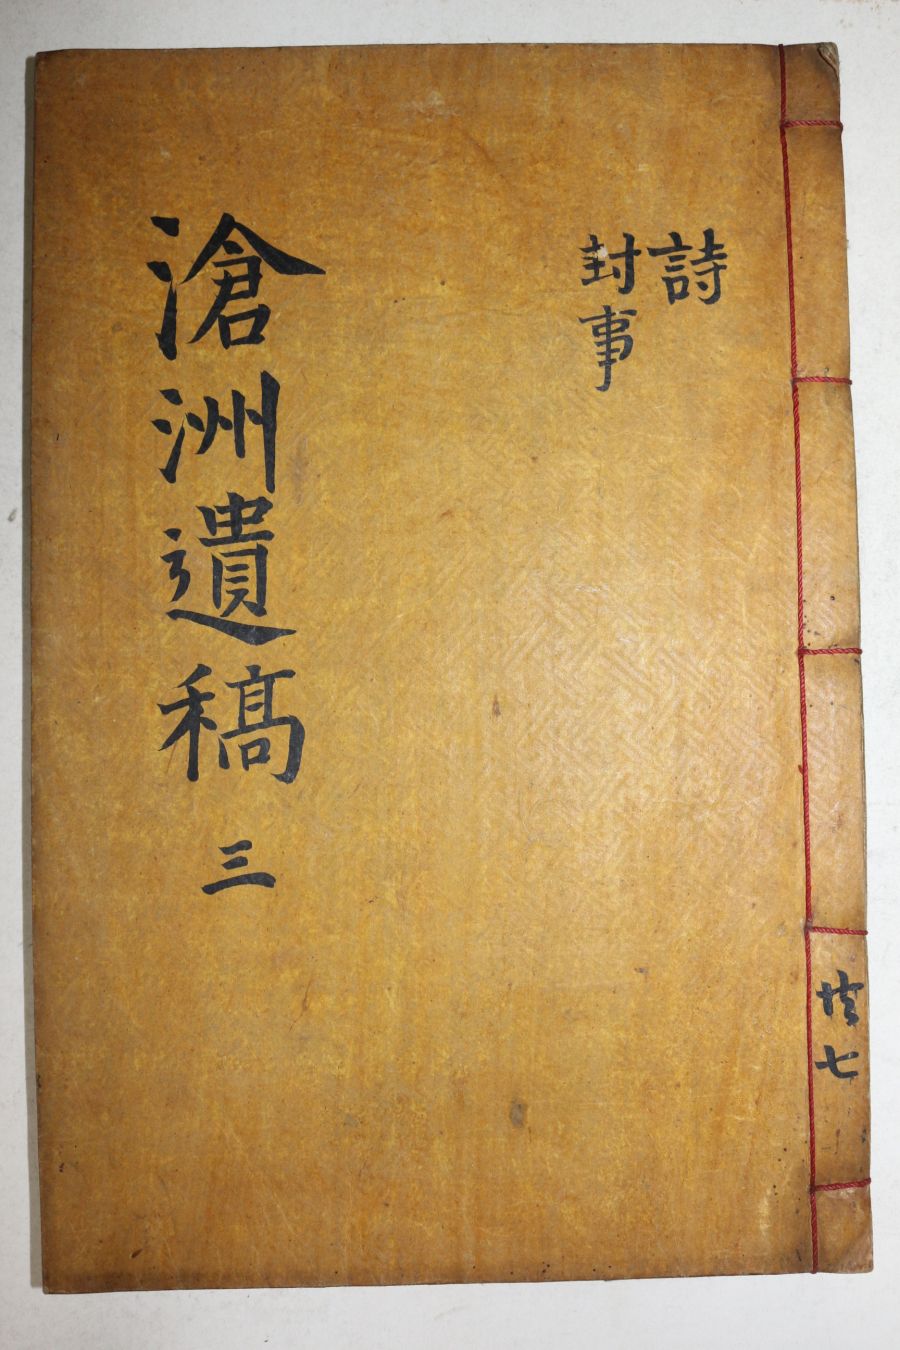 詩
封事
滄洲遺稿 三
共七